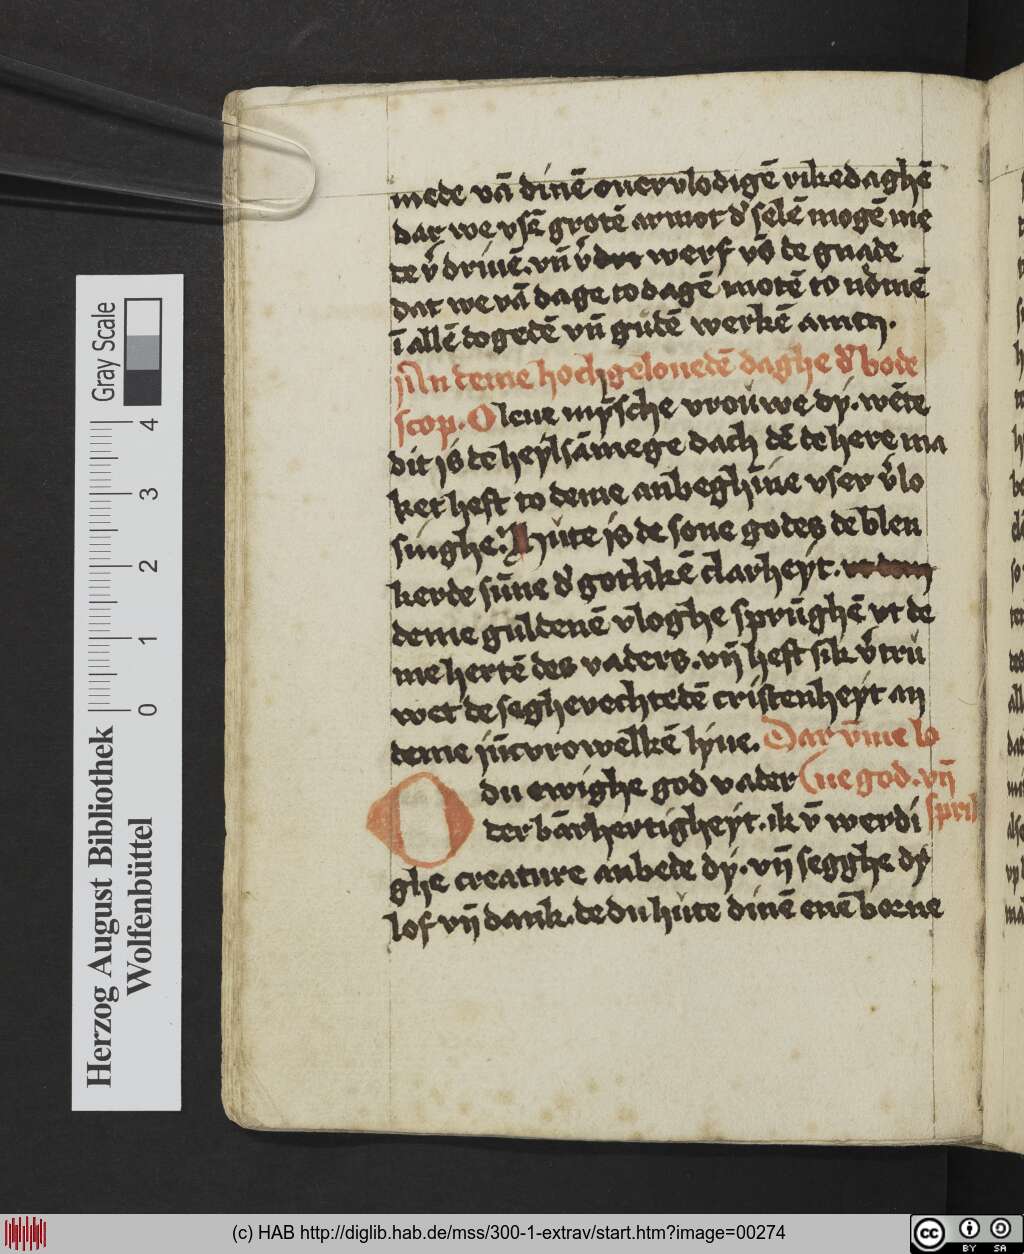 mede vā dinē ouervlodigē rikedaghē
dar we vsē grotē armot d' selē mogē me
te v'driuē. vn̄ v' werf vs̄ de gnade
dat we vā dage to dagē motē to nömē
ī allē dogedē vn̄ güdē werkē amen.
An deme hochgelouedē daghe d' bode
scop. O leue mȳsche vroůwe dÿ. wēte
dit is de heÿlsāmege dach dē de here ma
ket heft to deme anbeghīne vser v'lo
singhe. Hüte is de sone godes de blen
kerde sūne d' gotlikē clarheÿt.
deme guldenē vloghe sprūghē vt de
me hertē des vaders. vn̄ heft sik v'trů
wet de segherechtedē cristenheÿt an
deme jūcvrowelkē lÿue. Dar v̄me lo
O du ewighe god vader (ue god. vn̄
der bārhertigheÿt. ik v̄ werdi spri
ghe creature anbede dÿ. vn̄ segghe dÿ
lof vn̄ dank. de du hüte dinē enē borne
Gray Scale
0 1 2 3 4
Herzog August Bibliothek
Wolfenbüttel
(c) HAB http://diglib.hab.de/mss/300-1-extrav/start.htm?image=00274
cc BY SA